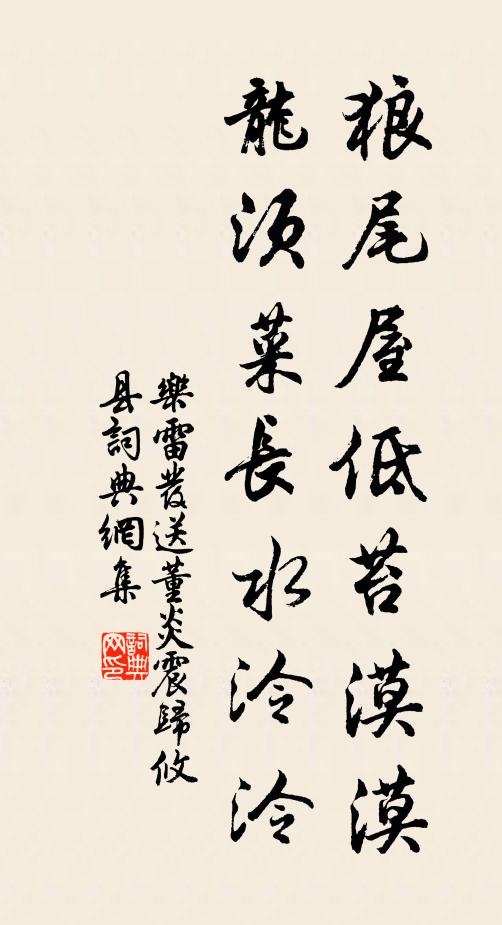 狼尾屋低苔漠漠
龍須菜長水泠泠
樂雷發送董炎震歸攸
县詞典網集
詞典网印